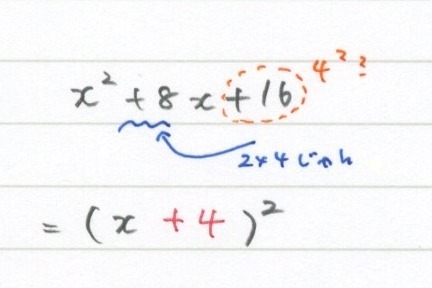 x² + 8x + 16
4²?
2×4 じゃん
= (x + 4)²